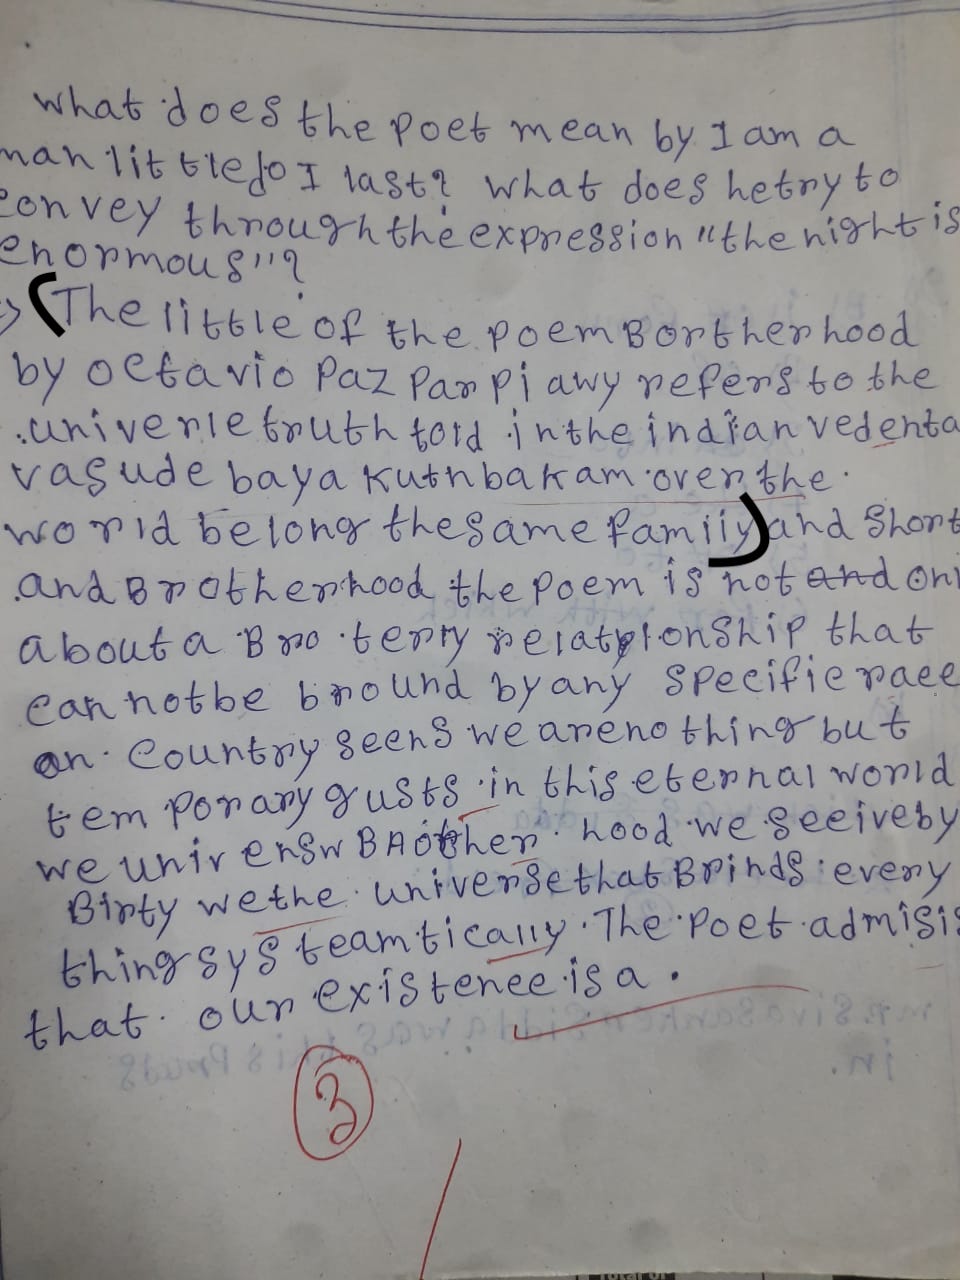 what does the poet mean by I am a
man little do I last? what does he try to
convey through the expression "the night is
enormous"?
The little of the poem Bortherhood
by octavio Paz Par pi awy refers to the
univerle truth told in the indian vedenta
vasude baya Kutnbakam over the
world belong the same family and Short
and Brotherhood the poem is not and onl
about a Bro terry relationship that
can not be bround by any specific race
on country seens we are no thing but
tem porary gusts in this eternal world
we univ ersw BAother hood we seeiveby
Birty we the universe that Brinds every
thing sys team tically. The poet admisis
that our existence is a.
3